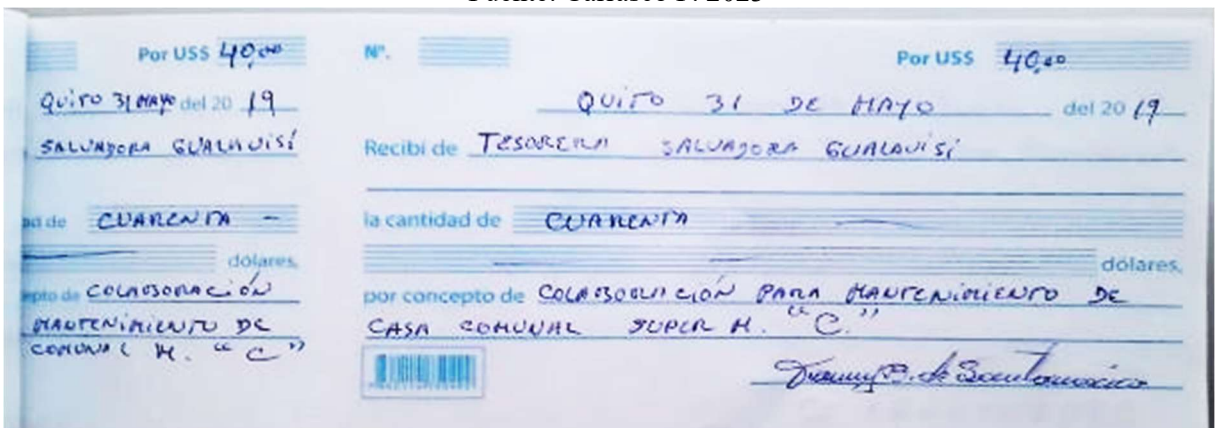 Por US$ 40,00
Quito 31 MAYO del 20 19
SALVADORA GUALAVISÍ
ad de CUARENTA -
dólares,
epto de COLABORACIÓN
MANTENIMIENTO DE
COMUNAL M. "C"
Nº.
Por US$ 40,00
QUITO 31 DE MAYO del 20 19
Recibí de TESORERA SALVADORA GUALAVISÍ
la cantidad de CUARENTA
dólares,
por concepto de COLABORACIÓN PARA MANTENIMIENTO DE
CASA COMUNAL SUPER M. "C."